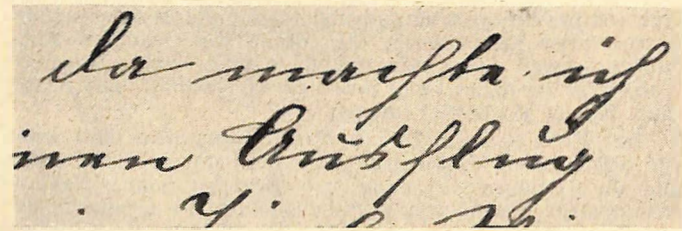 da machte ich
nen Ausflug